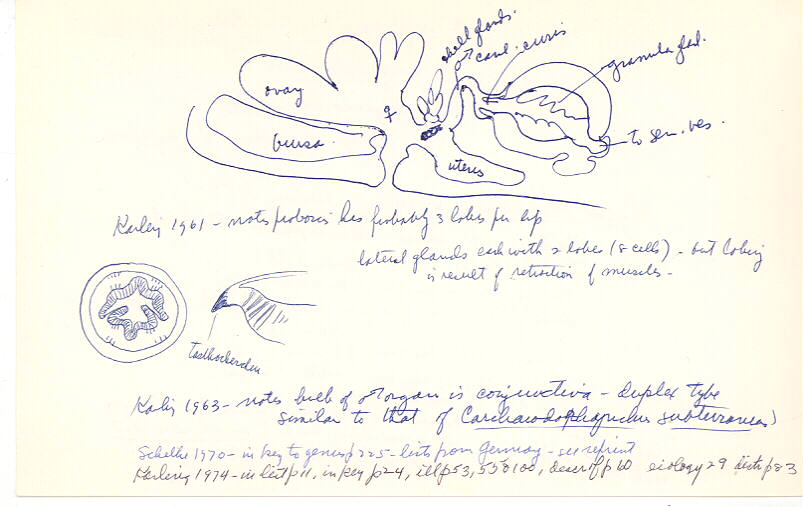 shell glands.
♂ canal. cirris
granular gld.
ovary
♀
bursa
uterus
to sem. ves.
Karling 1961 - notes proboscis has probably 3 lobes per lip
lateral glands each with 2 lobes (8 cells) - but lobing
is result of retraction of muscles -
Karling 1963 - notes bulb of ♂ organ is conjunctiva - duplex type
similar to that of Carcharodorhynchus subterraneus)
1970 - in key to genus p225 - lists from Germany - see reprint
Karling 1974 - in list p11, in key p24, ill p53, 55&100, descr of p60 eiology 29 lists p83